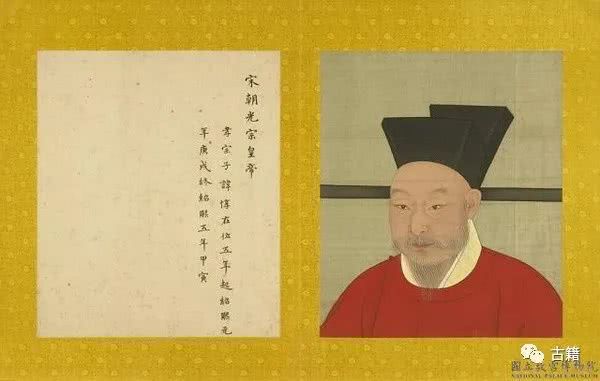 宋朝光宗皇帝
孝宗子諱惇在位五年起紹熙元
年庚戌終紹熙五年甲寅
古籍
國立故宮博物院
NATIONAL PALACE MUSEUM